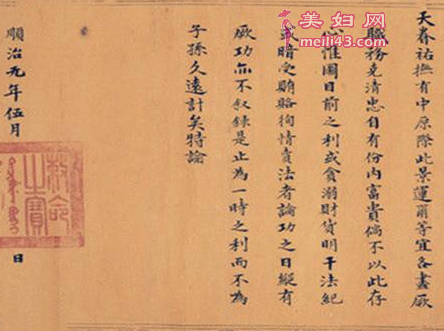 美妇网
meili43.com
天眷祐撫有中原際此景運爾等宜各盡厥
職務克清忠自有份内富貴倘不以此存
心惟圖目前之利或貪溺財貨明干法紀
或暗受賄賂徇情賣法者論功之日縱有
厥功亦不叙錄是止為一時之利而不為
子孫久遠計矣特諭
順治元年伍月
日
敕命之寶